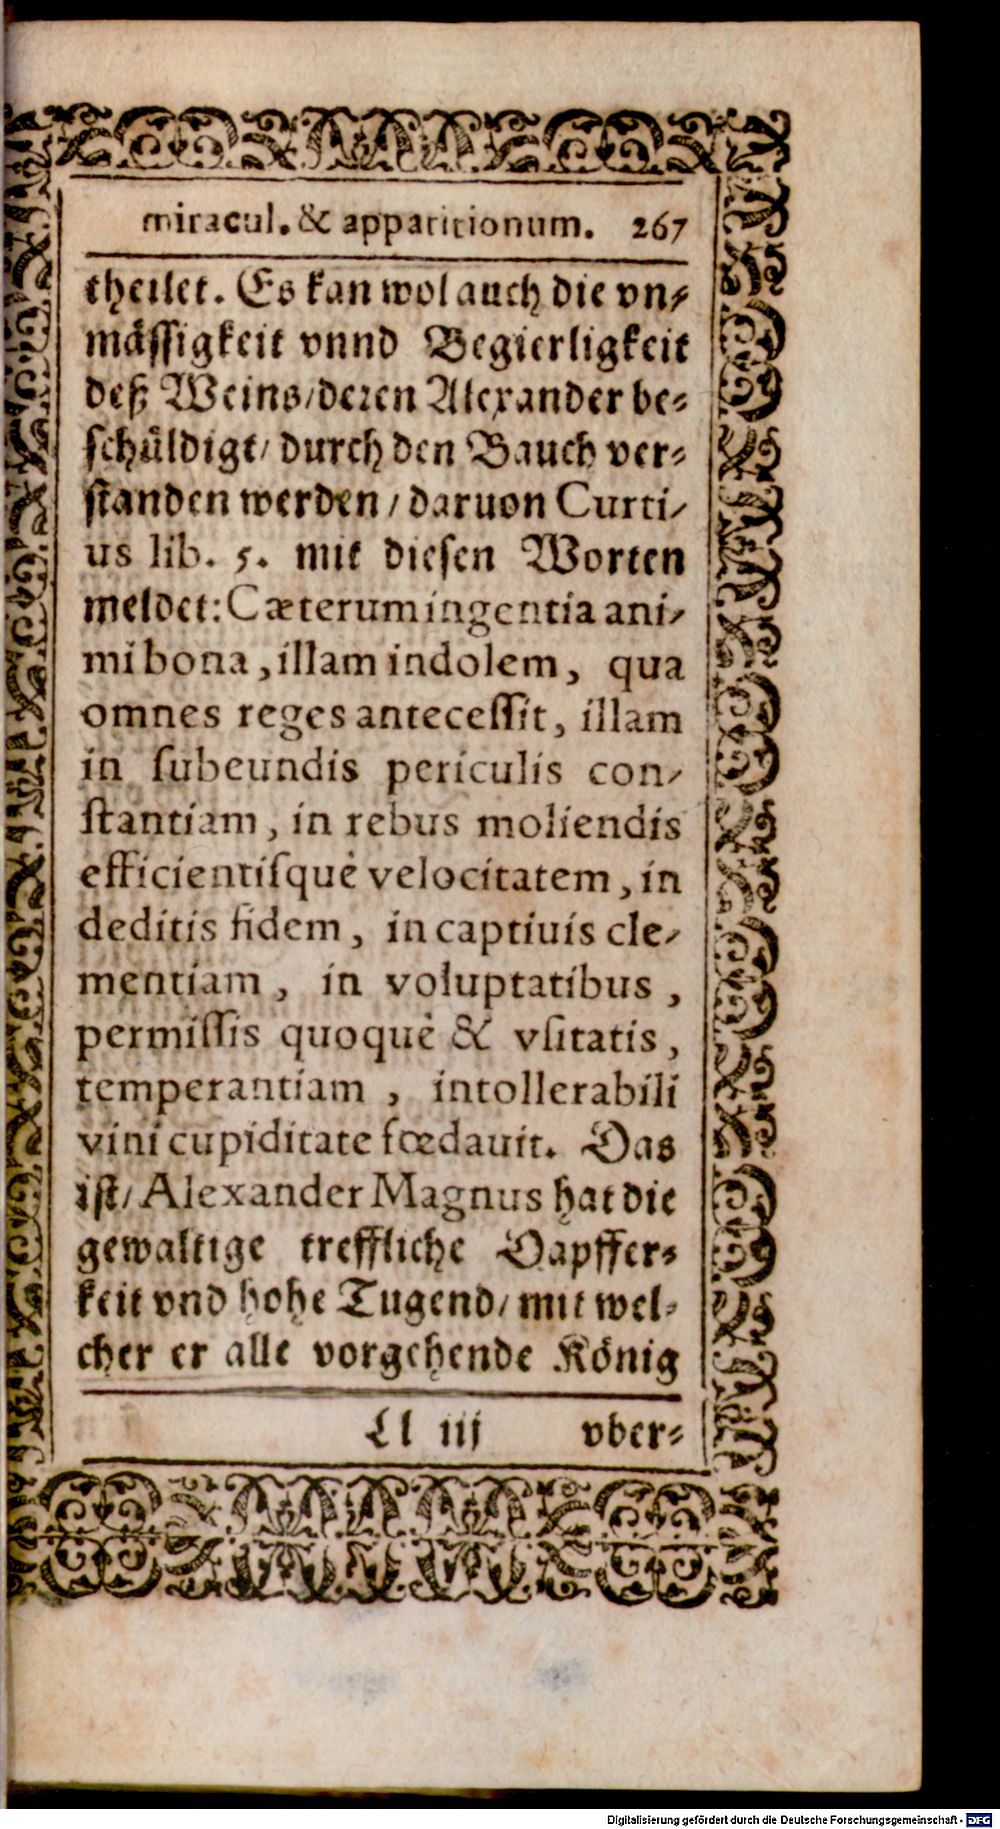 miracul. & apparitionum. 267
theilet. Es kan wol auch die vn⸗
mässigkeit vnnd Begierligkeit
deß Weins/deren Alexander be⸗
schüldigt/ durch den Bauch ver⸗
standen werden / daruon Curti-
us lib. 5. mit diesen Worten
meldet: Cæterum ingentia ani-
mi bona, illam indolem, qua
omnes reges antecessit, illam
in subeundis periculis con-
stantiam, in rebus moliendis
efficientisquè velocitatem, in
deditis fidem, in captiuis cle-
mentiam, in voluptatibus,
permissis quoquè & vsitatis,
temperantiam, intollerabili
vini cupiditate fœdauit. Das
ist/ Alexander Magnus hat die
gewaltige treffliche Dapffer⸗
keit vnd hohe Tugend/ mit wel⸗
cher er alle vorgehende König
Ll iij vber⸗
Digitalisierung gefördert durch die Deutsche Forschungsgemeinschaft - DFG